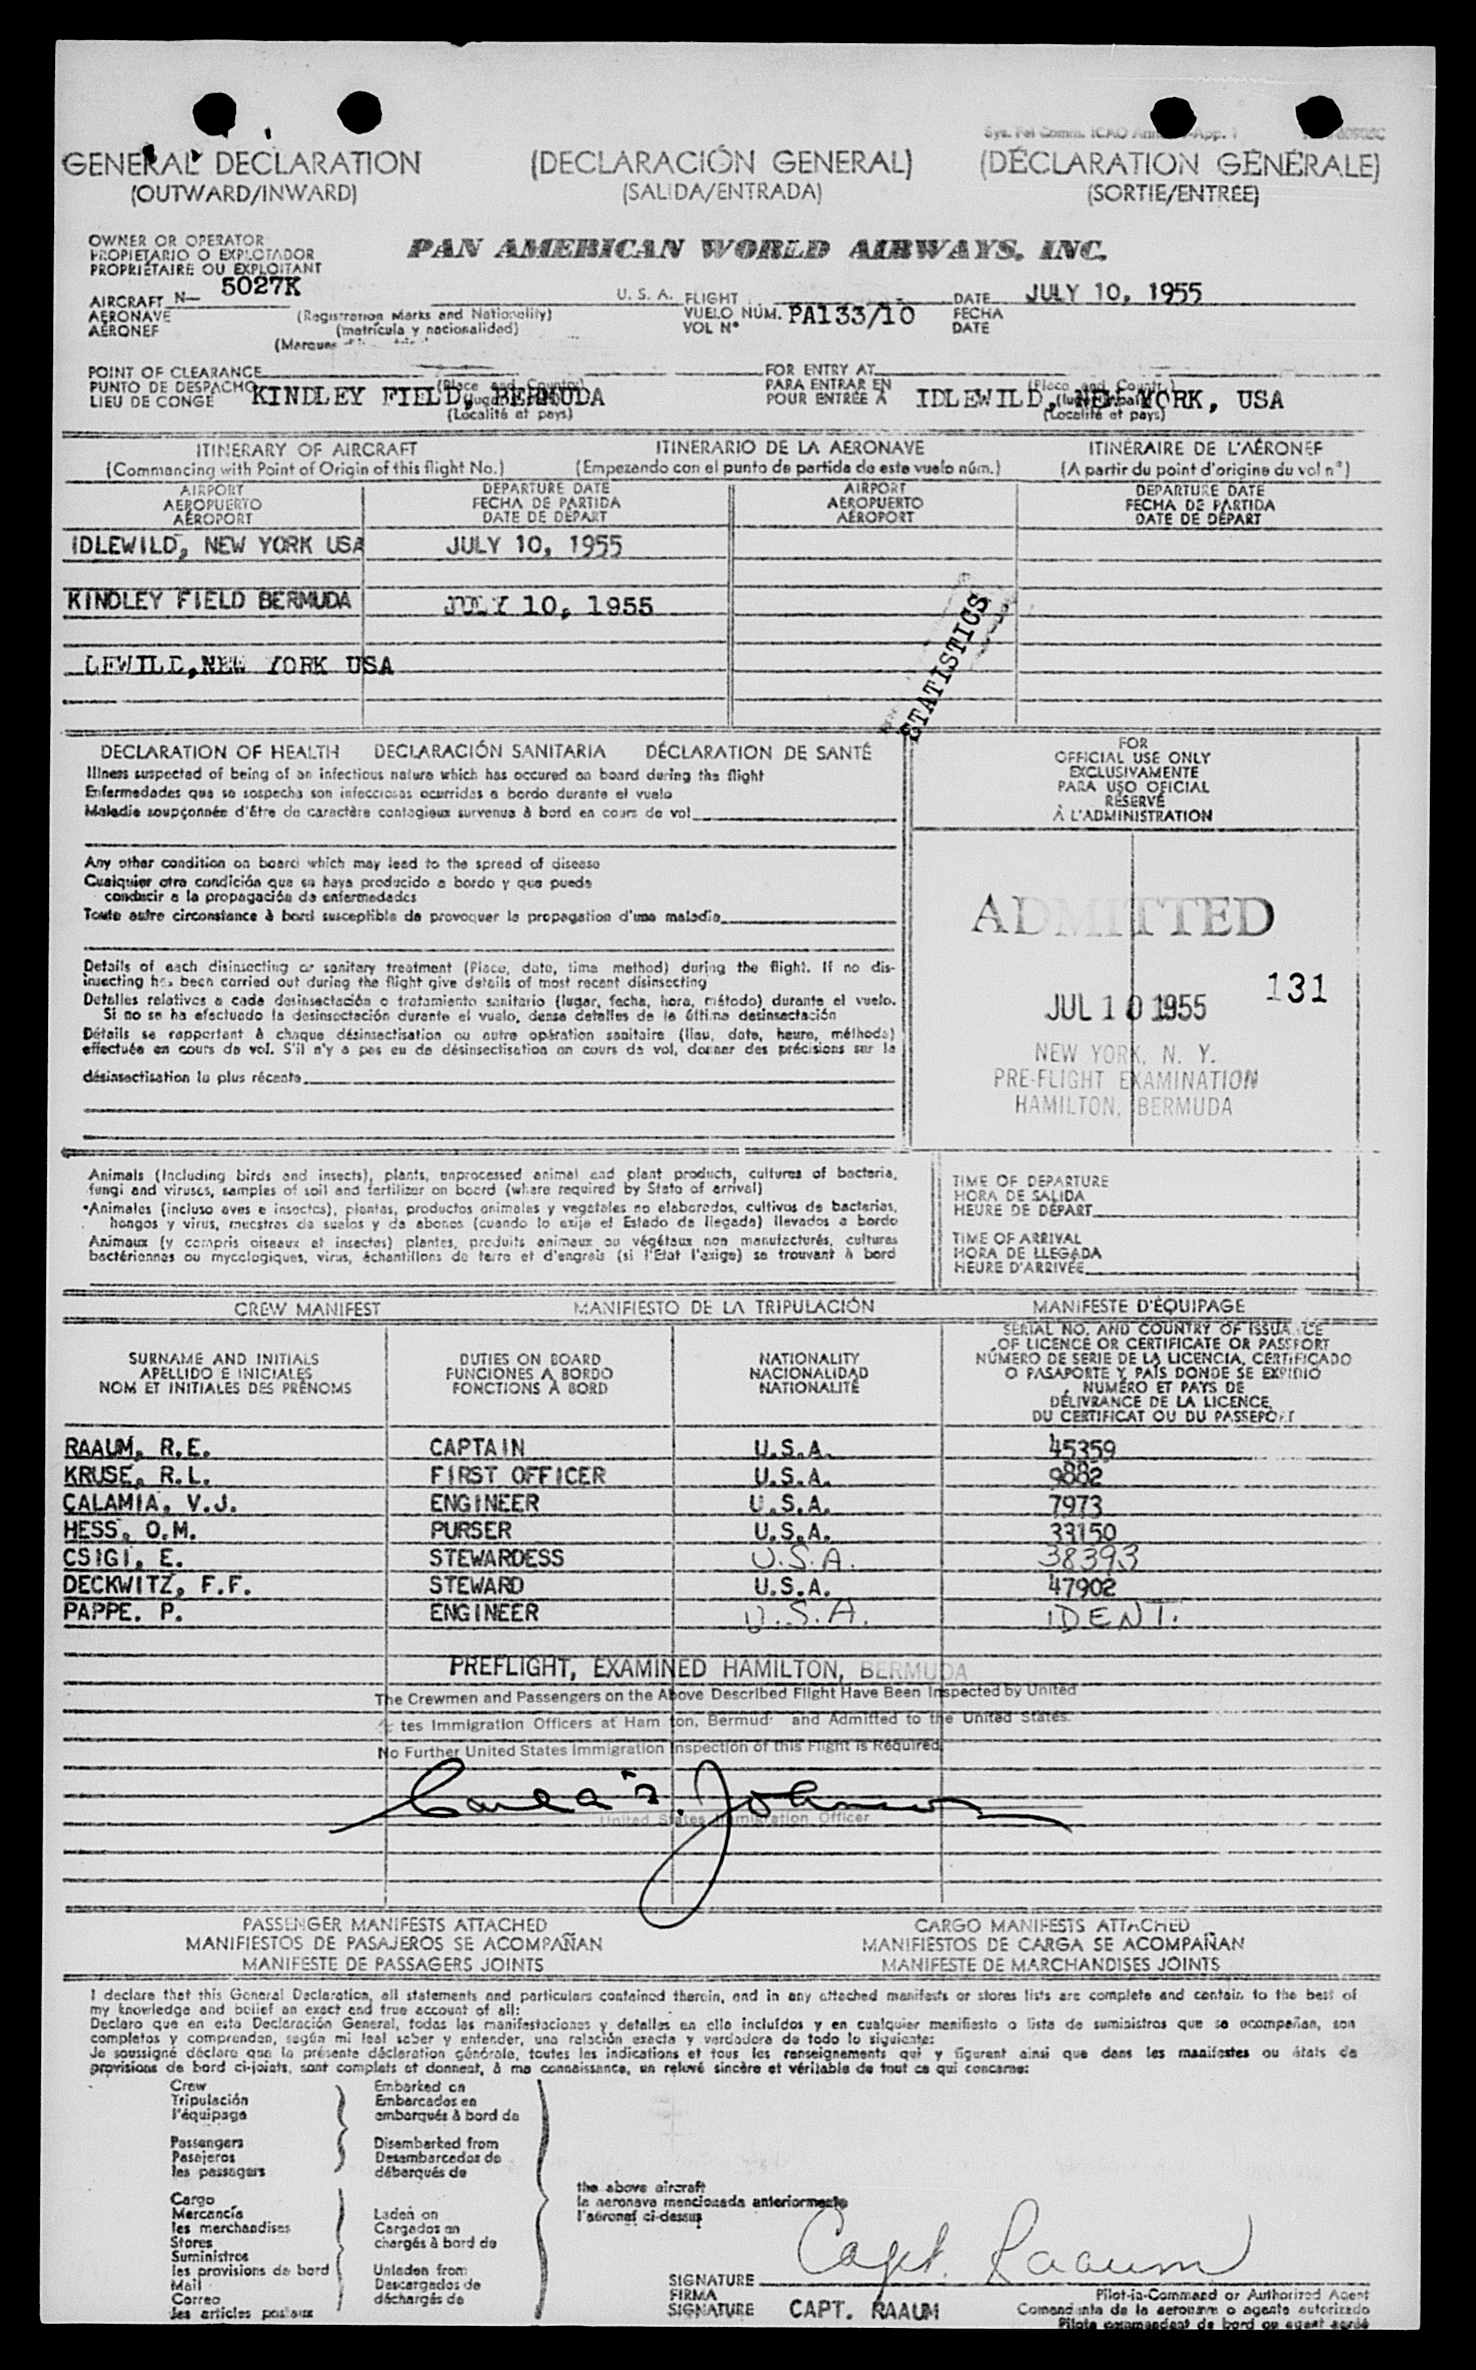 GENERAL DECLARATION (DECLARACIÓN GENERAL) (DÉCLARATION GÉNÉRALE)
(OUTWARD/INWARD) (SALIDA/ENTRADA) (SORTIE/ENTREE)
OWNER OR OPERATOR
PROPIETARIO O EXPLOTADOR
PROPRIÉTAIRE OU EXPLOITANT
PAN AMERICAN WORLD AIRWAYS, INC.
AIRCRAFT N— 5027K U. S. A. FLIGHT DATE JULY 10, 1955
AERONAVE (Registration Marks and Nationality) VUELO NÚM. PA133/10 FECHA
AÉRONEF (matrícula y nacionalidad) VOL N° DATE
(Marques
POINT OF CLEARANCE FOR ENTRY AT
PUNTO DE DESPACHO KINDLEY FIELD, BERMUDA (Place and Country) PARA ENTRAR EN IDLEWILD, NEW YORK, USA
LIEU DE CONGÉ (Localité et pays) POUR ENTRÉE À (Localité et pays)
ITINERARY OF AIRCRAFT ITINERARIO DE LA AERONAVE ITINÉRAIRE DE L'AÉRONEF
(Commencing with Point of Origin of this flight No.) (Empezando con el punto de partida de este vuelo núm.) (A partir du point d'origine du vol n°)
AIRPORT DEPARTURE DATE AIRPORT DEPARTURE DATE
AEROPUERTO FECHA DE PARTIDA AEROPUERTO FECHA DE PARTIDA
AÉROPORT DATE DE DÉPART AÉROPORT DATE DE DÉPART
IDLEWILD, NEW YORK USA JULY 10, 1955
KINDLEY FIELD BERMUDA JULY 10, 1955
LEWILD,NEW YORK USA
STATISTICS
DECLARATION OF HEALTH DECLARACIÓN SANITARIA DÉCLARATION DE SANTÉ
Illness suspected of being of an infectious nature which has occured on board during the flight
Enfermedades que se sospecha son infecciosas ocurridas a bordo durante el vuelo
Maladie soupçonnée d'être de caractère contagieux survenue à bord en cours de vol
FOR
OFFICIAL USE ONLY
EXCLUSIVAMENTE
PARA USO OFICIAL
RÉSERVÉ
À L'ADMINISTRATION
Any other condition on board which may lead to the spread of disease
Cualquier otra condición que se haya producido a bordo y que pueda
conducir a la propagación de enfermedades
Toute autre circonstance à bord susceptible de provoquer la propagation d'une maladie
Details of each disinsecting or sanitary treatment (Place, date, time method) during the flight. If no dis-
insecting has been carried out during the flight give details of most recent disinsecting
Detalles relativos a cada desinsectación o tratamiento sanitario (lugar, fecha, hora, método) durante el vuelo.
Si no se ha efectuado la desinsectación durante el vuelo, dense detalles de la última desinsectación
Détails se rapportant à chaque désinsectisation ou autre opération sanitaire (lieu, date, heure, méthode)
effectuée en cours de vol. S'il n'y a pas eu de désinsectisation en cours de vol, donner des précisions sur la
désinsectisation la plus récente
ADMITTED
131
JUL 10 1955
NEW YORK, N. Y.
PRE-FLIGHT EXAMINATION
HAMILTON, BERMUDA
Animals (Including birds and insects), plants, unprocessed animal and plant products, cultures of bacteria,
fungi and viruses, samples of soil and fertilizer on board (where required by State of arrival)
Animales (incluso aves e insectos), plantas, productos animales y vegetales no elaborados, cultivos de bacterias,
hongos y virus, muestras de suelos y de abonos (cuando lo exija el Estado de llegada) llevados a bordo
Animaux (y compris oiseaux et insectes) plantes, produits animaux ou végétaux non manufacturés, cultures
bactériennes ou mycologiques, virus, échantillons de terre et d'engrais (si l'État l'exige) se trouvant à bord
TIME OF DEPARTURE
HORA DE SALIDA
HEURE DE DÉPART
TIME OF ARRIVAL
HORA DE LLEGADA
HEURE D'ARRIVÉE
CREW MANIFEST MANIFIESTO DE LA TRIPULACIÓN MANIFESTE D'ÉQUIPAGE
SURNAME AND INITIALS
APELLIDO E INICIALES
NOM ET INITIALES DES PRÉNOMS
DUTIES ON BOARD
FUNCIONES A BORDO
FONCTIONS À BORD
NATIONALITY
NACIONALIDAD
NATIONALITÉ
SERIAL NO. AND COUNTRY OF ISSUANCE
OF LICENCE OR CERTIFICATE OR PASSPORT
NÚMERO DE SERIE DE LA LICENCIA, CERTIFICADO
O PASAPORTE Y PAÍS DONDE SE EXPIDIÓ
NUMÉRO ET PAYS DE
DÉLIVRANCE DE LA LICENCE,
DU CERTIFICAT OU DU PASSEPORT
RAAUM, R.E. CAPTAIN U.S.A. 45359
KRUSE, R.L. FIRST OFFICER U.S.A. 9882
CALAMIA, V.J. ENGINEER U.S.A. 7973
HESS, O.M. PURSER U.S.A. 33150
CSIGI, E. STEWARDESS U.S.A. 38393
DECKWITZ, F.F. STEWARD U.S.A. 47902
PAPPE. P. ENGINEER U.S.A. IDENT.
PREFLIGHT, EXAMINED HAMILTON, BERMUDA
The Crewmen and Passengers on the Above Described Flight Have Been Inspected by United
tes Immigration Officers at Ham ton, Bermud and Admitted to the United States.
No Further United States Immigration Inspection of this Flight is Required.
Johnson
United States Immigration Officer
PASSENGER MANIFESTS ATTACHED CARGO MANIFESTS ATTACHED
MANIFIESTOS DE PASAJEROS SE ACOMPAÑAN MANIFIESTOS DE CARGA SE ACOMPAÑAN
MANIFESTE DE PASSAGERS JOINTS MANIFESTE DE MARCHANDISES JOINTS
I declare that this General Declaration, all statements and particulars contained therein, and in any attached manifests or stores lists are complete and contain to the best of
my knowledge and belief an exact and true account of all:
Declaro que en esta Declaración General, todas las manifestaciones y detalles en ella incluídos y en cualquier manifiesto o lista de suministros que se acompañan, son
completos y comprenden, según mi leal saber y entender, una relación exacta y verdadera de todo lo siguiente:
Je soussigné déclare que la présente déclaration générale, toutes les indications et tous les renseignements qui y figurent ainsi que dans les manifestes ou états de
provisions de bord ci-joints, sont complets et donnent, à ma connaissance, un relevé sincère et véritable de tout ce qui concerne:
Crew Embarked on
Tripulación Embarcados en
l'équipage embarqués à bord de
Passengers Disembarked from
Pasajeros Desembarcados de
les passagers débarqués de
the above aircraft
la aeronave mencionada anteriormente
l'aéronef ci-dessus
Cargo
Mercancía Laden on
les merchandises Cargados en
Stores chargés à bord de
Suministros
les provisions de bord Unladen from
Mail Descargados de
Correo déchargés de
les articles postaux
Capt. Raaum
SIGNATURE
FIRMA
SIGNATURE CAPT. RAAUM
Pilot-in-Command or Authorized Agent
Comandante de la aeronave o agente autorizado
Pilote commandant de bord ou agent agréé